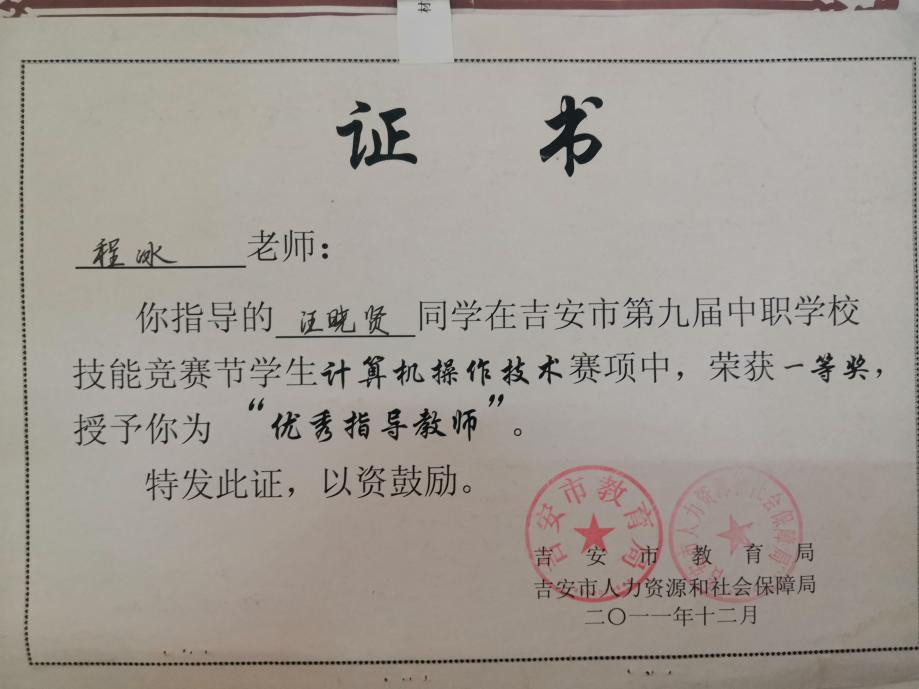 材
证 书
程冰 老师:
你指导的 汪晓贤 同学在吉安市第九届中职学校
技能竞赛节学生计算机操作技术赛项中，荣获一等奖，
授予你为 “优秀指导教师”。
特发此证，以资鼓励。
吉安市教育局
吉安市人力资源和社会保障局
吉安市教育局
吉安市人力资源和社会保障局
二〇一一年十二月